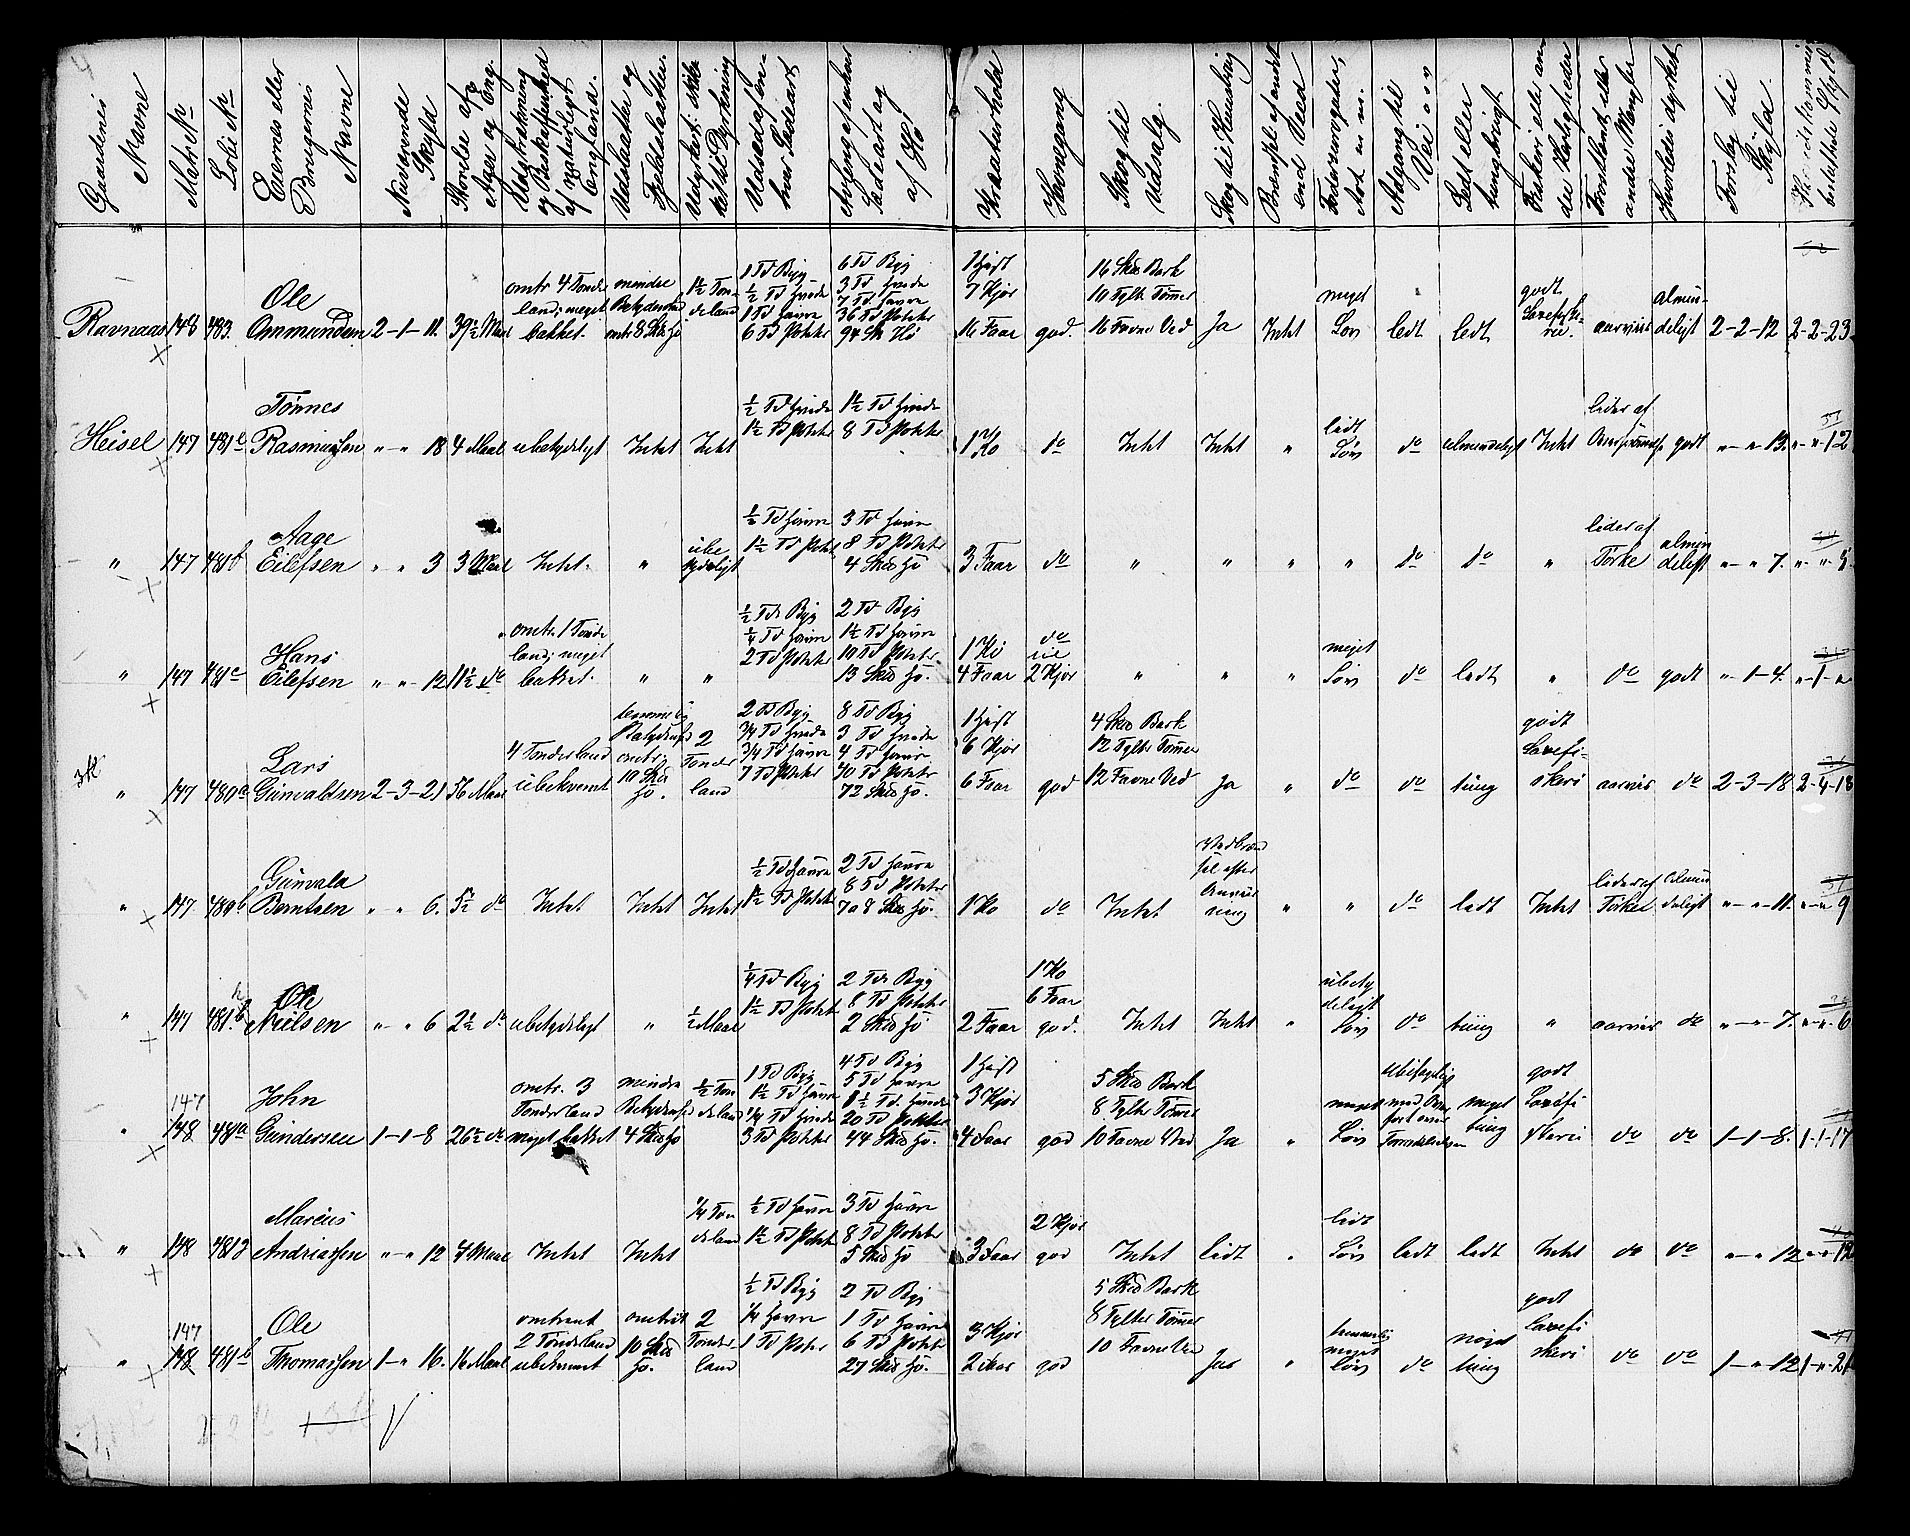 Gaardenes Navne | Matr No | Løbe No | Eiernes eller Brugernes Navne | Nuværende Skyld | Størrelse af Ager og Eng. | Udstrækning og Beskaffenhed af naturligt England. | Udslaatter og Fjeldslaatter. | Udyrket, skikket til Dyrkning | Udsæd af enhver Sædeart | Avling af enhver Sædeart og af Hø | Kreaturhold | Havnegang | Skog til Udsalg. | Skog til Huusbrug | Brændsel af andet end Ved | Adgang til Vei | Let eller tungbrugt | Fiskeri eller andre Herligheder | Hvorledes dyrket | Forslag til Skyld.
Ravnaas | 148 | 483. | Ole Ommundsen | 2-1-11. | 39½ Maal | omtr 4 Tønde land; meget bakket. | mindre Betydenhed omtr 8 Skd Hø | 1½ Tøndeland | 1 Td Byg ½ Td Hvede 1 Td Havre 6 Td Potetes | 6 Td Byg 3 Td Hvede 7 Td Havre 36 Td Potetes 94 Sk Hø | 1 Hest 7 Kjør 16 Faar | god. | 16 Skd Bark 10 Tylter Tømmer 16 Favne Ved | Ja | Intet | meget Løv | ledt | ledt | godt Laxefiskeri. | aarvis | almindeligt | 2-2-12 | 2-2-23
Heisel | 147 | 481e | Tønnes Rasmussen | „-„ 18 | 4 Maal | ubetydeligt | Intet | Intet | ½ Td Hvede 1½ Td Potetes | 1½ Td Hvede 8 Td Potetes | 1 Ko | do | Intet | Intet | „ | lidt Løv | do | almindeligt | Intet | lider af | godt | „-„ 13. | „-„-12
„ | 147 | 481f | Aage Eilefsen | „ „ 3 | 3 Maal | Intet. | „ | ubetydeligt | ½ Td Havre 1½ Td Potet | 3 Td Havre 8 Td Potetes 4 Skd Hø | 3 Faar | do | „ | „ | „ | „ | do | do | „ | lider af Tørke | almindeligt | „-„ 7. | „-„-5
„ | 147 | 481c | Hans Eilefsen | „ „ 12 | 11½ do | omtr. 1 Tønde land; meget bakket. | „ | „ | ½ Td Byg ¼ Td Havre 2 Td Potetes | 2 Td Byg 1½ Td Havre 10 Td Potetes 13 Skd Hø. | 1 Ko 4 Faar | do til 2 Kjør | „ | „ | „ | meget Løv | do | ledt | „ | do | godt | „-1-4. | „-1-„
„ | 147 | 480a | Lars Gunvaldsen | 2-3-21 | 56 Maal | 4 Tønderland ubekvemt | temmelig Betydenhed omtr 10 Skd Hø. | 2 Tønderland | 2 Td Byg ¾ Td Hvede ¾ Td Havre 7 Td Potetes | 8 Td Byg 3 Td Hvede 4 Td Havre 40 Td Potetes 72 Skd Hø. | 1 Hest 6 Kjør 6 Faar | god | 4 Skd Bark 12 Tylter Tømmer 12 Favne Ved | Ja | „ | do | do | tung | godt Laxefiskeri | aarvis | do | 2-3-18 | 2-4-18
„ | 147 | 480b | Gunvald Berntsen | „-„ 6. | 5½ do | Intet | Intet | Intet | ½ Td Havre 1½ Td Potetes | 2 Td Havre 8 Td Potetes 7 a 8 Skd Hø. | 1 Ko | do | Intet | Vedbrændsel efter Anviisning | „ | „ | do | ledt | Intet | lider af Tørke | almindeligt | „-„-11. | „-„-9
„ | 147 | 481.b | Ole Nielsen | „-„ 6 | 2½ do | ubetydeligt | „ | ½ Maal | ¼ Td Byg 1½ Td Potet | 2 Td Byg 8 Td Potetes 2 Skd Hø | 2 Faar | 1 Ko 6 Faar god. | Intet | Intet | „ | ubetydeligt Løv | do | tung | „ | aarvis | do | „-„-7. | „-„-6
„ | 147 148 | 481a | John Gundersen | 1-1-8 | 26½ do | omtr. 3 Tønderland meget bakket | mindre Betydenhed 4 Skd Hø | ½ Tøndeland | 1 Td Byg 1½ Td Havre ¼ Td Hvede 3 Td Potetes | 4 Td Byg 5 Td Havre 1½ Td. Hvede 20 Td Potetes 44 Skd Hø. | 1 Hest 3 Kjør 4 Faar | god | 5 Skd Bark 8 Tylter Tømmer 10 Favne Ved | Ja | „ | meget Løv | meget tung | godt Laxefiskeri | do | do | 1-1-8. | 1-1-17
„ | 148 | 481d | Marcus Andreassen | „-„ 12 | 7 Maal | Intet | Intet | ¼ Tøndeland | ½ Td Havre 1½ Td Potet | 3 Td Havre 8 Td Potetes 5 Skd Hø | 3 Faar | 2 Kjør god | Intet | lidt | „ | lidt Løv | ledt | ledt | Intet | do | do | „-„ 12 | „-„-12
„ | 147 148 | 481b | Ole Thomassen | 1-„ 16. | 16 Maal | omtrent 2 Tønderland ubekvemt | omtrent 10 Skd Hø. | 2 Tønderland | ½ Td Byg ¼ Havre 1 Td Potet | 2 Td Byg 1 Td Havre 6 Td Potetes 27 Skd Hø. | 3 Kjør 2 Faar | god | 5 Skd Bark 8 Tylter Tømmer 10 Favne Ved | Ja | „ | temmelig meget Løv | do | noget tung | godt Laxefiskeri | do | do | 1-„-12 | 1-„-21